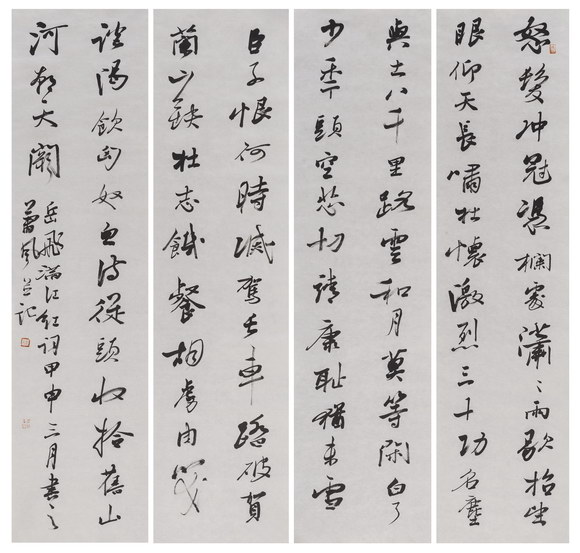 怒髮冲冠憑欄處瀟々雨歇抬望
眼仰天長嘯壮懷激烈三十功名塵
與土八千里路雲和月莫等閑白了
少年頭空悲切靖康耻猶未雪
臣子恨何時滅駕長車踏破賀
蘭山缺壮志饑餐胡虜肉笑
談渴飲匈奴血待從頭收拾舊山
河朝天闕
岳飛滿江红詞甲申三月書之
風并记